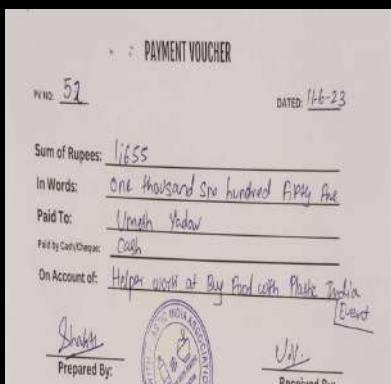 PAYMENT VOUCHER
PV NO: 52
DATED: 11-6-23
Sum of Rupees: 1,655
In Words: One thousand Six hundred Fifty Five
Paid To: Umesh Yadav
Paid by Cash/Cheque: Cash
On Account of: Helper work at Buy Food with Plastic India
Event
Shakti
U.Y.
Prepared By:
Received By: